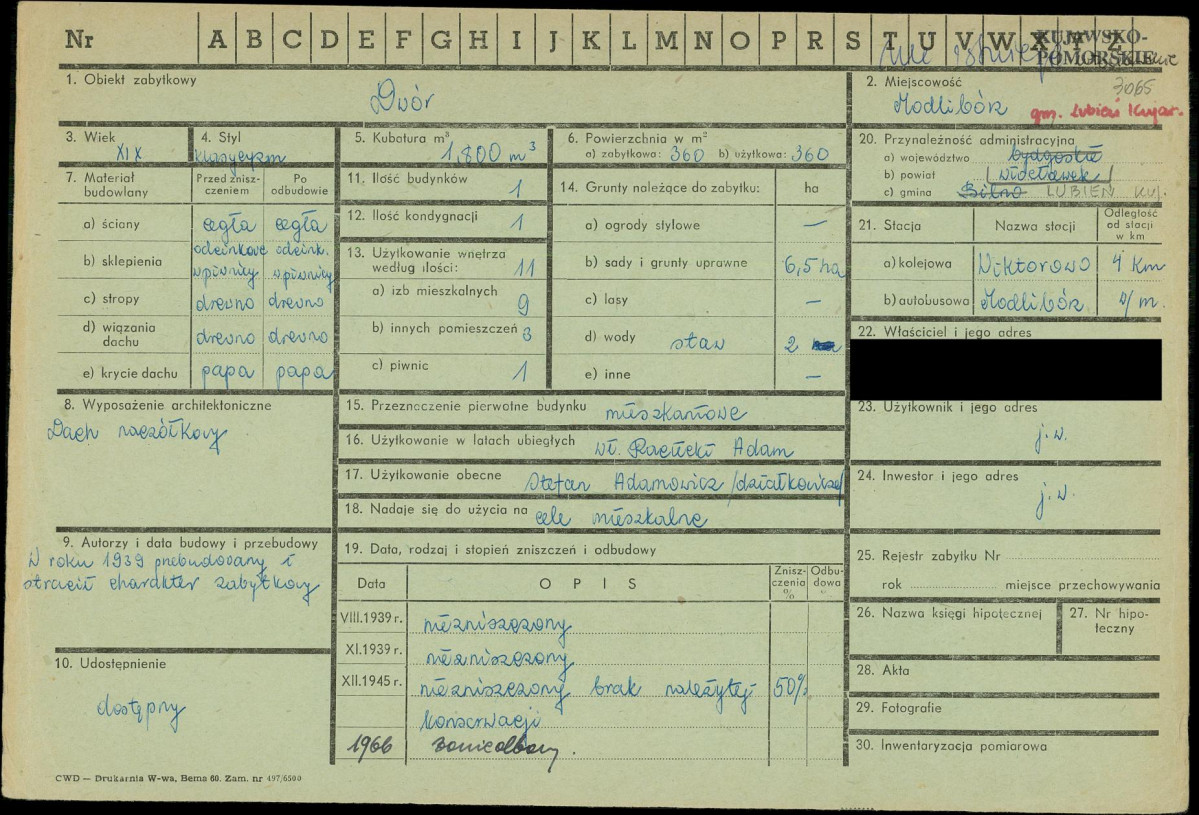 Nr A B C D E F G H I J K L M N O P R S T U V W X Y Z
KUJAWSKO-
POMORSKIE
3065
1. Obiekt zabytkowy
Dwór
2. Miejscowość
Modlibórz
gm. Lubień Kujaw.
3. Wiek
XIX
4. Styl
klasycyzm
5. Kubatura m³
1,800 m³
6. Powierzchnia w m²
a) zabytkowa: 360 b) użytkowa: 360
7. Materiał budowlany
Przed znisz-
czeniem
Po
odbudowie
a) ściany cegła cegła
b) sklepienia
odcinkowe odcink.
w piwnicy w piwnicy
c) stropy drewno drewno
d) wiązania
dachu drewno drewno
e) krycie dachu papa papa
8. Wyposażenie architektoniczne
Dach naczółkowy
9. Autorzy i data budowy i przebudowy
W roku 1939 przebudowany i
stracił charakter zabytkowy
10. Udostępnienie
dostępny
11. Ilość budynków 1
12. Ilość kondygnacji 1
13. Użytkowanie wnętrza
według ilości: 11
a) izb mieszkalnych 9
b) innych pomieszczeń 3
c) piwnic 1
14. Grunty należące do zabytku: ha
a) ogrody stylowe —
b) sady i grunty uprawne 6,5 ha
c) lasy —
d) wody staw 2
e) inne —
15. Przeznaczenie pierwotne budynku mieszkaniowe
16. Użytkowanie w latach ubiegłych wł. Adam
17. Użytkowanie obecne Stefan Adamowicz /działkowicze/
18. Nadaje się do użycia na cele mieszkalne
19. Data, rodzaj i stopień zniszczeń i odbudowy
Data OPIS Znisz-
czenia
% Odbu-
dowa
%
VIII.1939 r. niezniszczony
XI.1939 r. niezniszczony
XII.1945 r. niezniszczony brak należytej 50%
konserwacji
1966 zaniedbany.
20. Przynależność administracyjna
a) województwo bydgoskie
b) powiat włocławek
c) gmina Bilno LUBIEŃ KUJ.
21. Stacja Nazwa stacji Odległość
od stacji
w km
a) kolejowa Wiktorowo 4 Km
b) autobusowa Modlibórz w/m.
22. Właściciel i jego adres
23. Użytkownik i jego adres
j.w.
24. Inwestor i jego adres
j.w.
25. Rejestr zabytku Nr
rok miejsce przechowywania
26. Nazwa księgi hipotecznej
27. Nr hipo-
teczny
28. Akta
29. Fotografie
30. Inwentaryzacja pomiarowa
CWD — Drukarnia W-wa, Bema 60. Zam. nr 497/6500